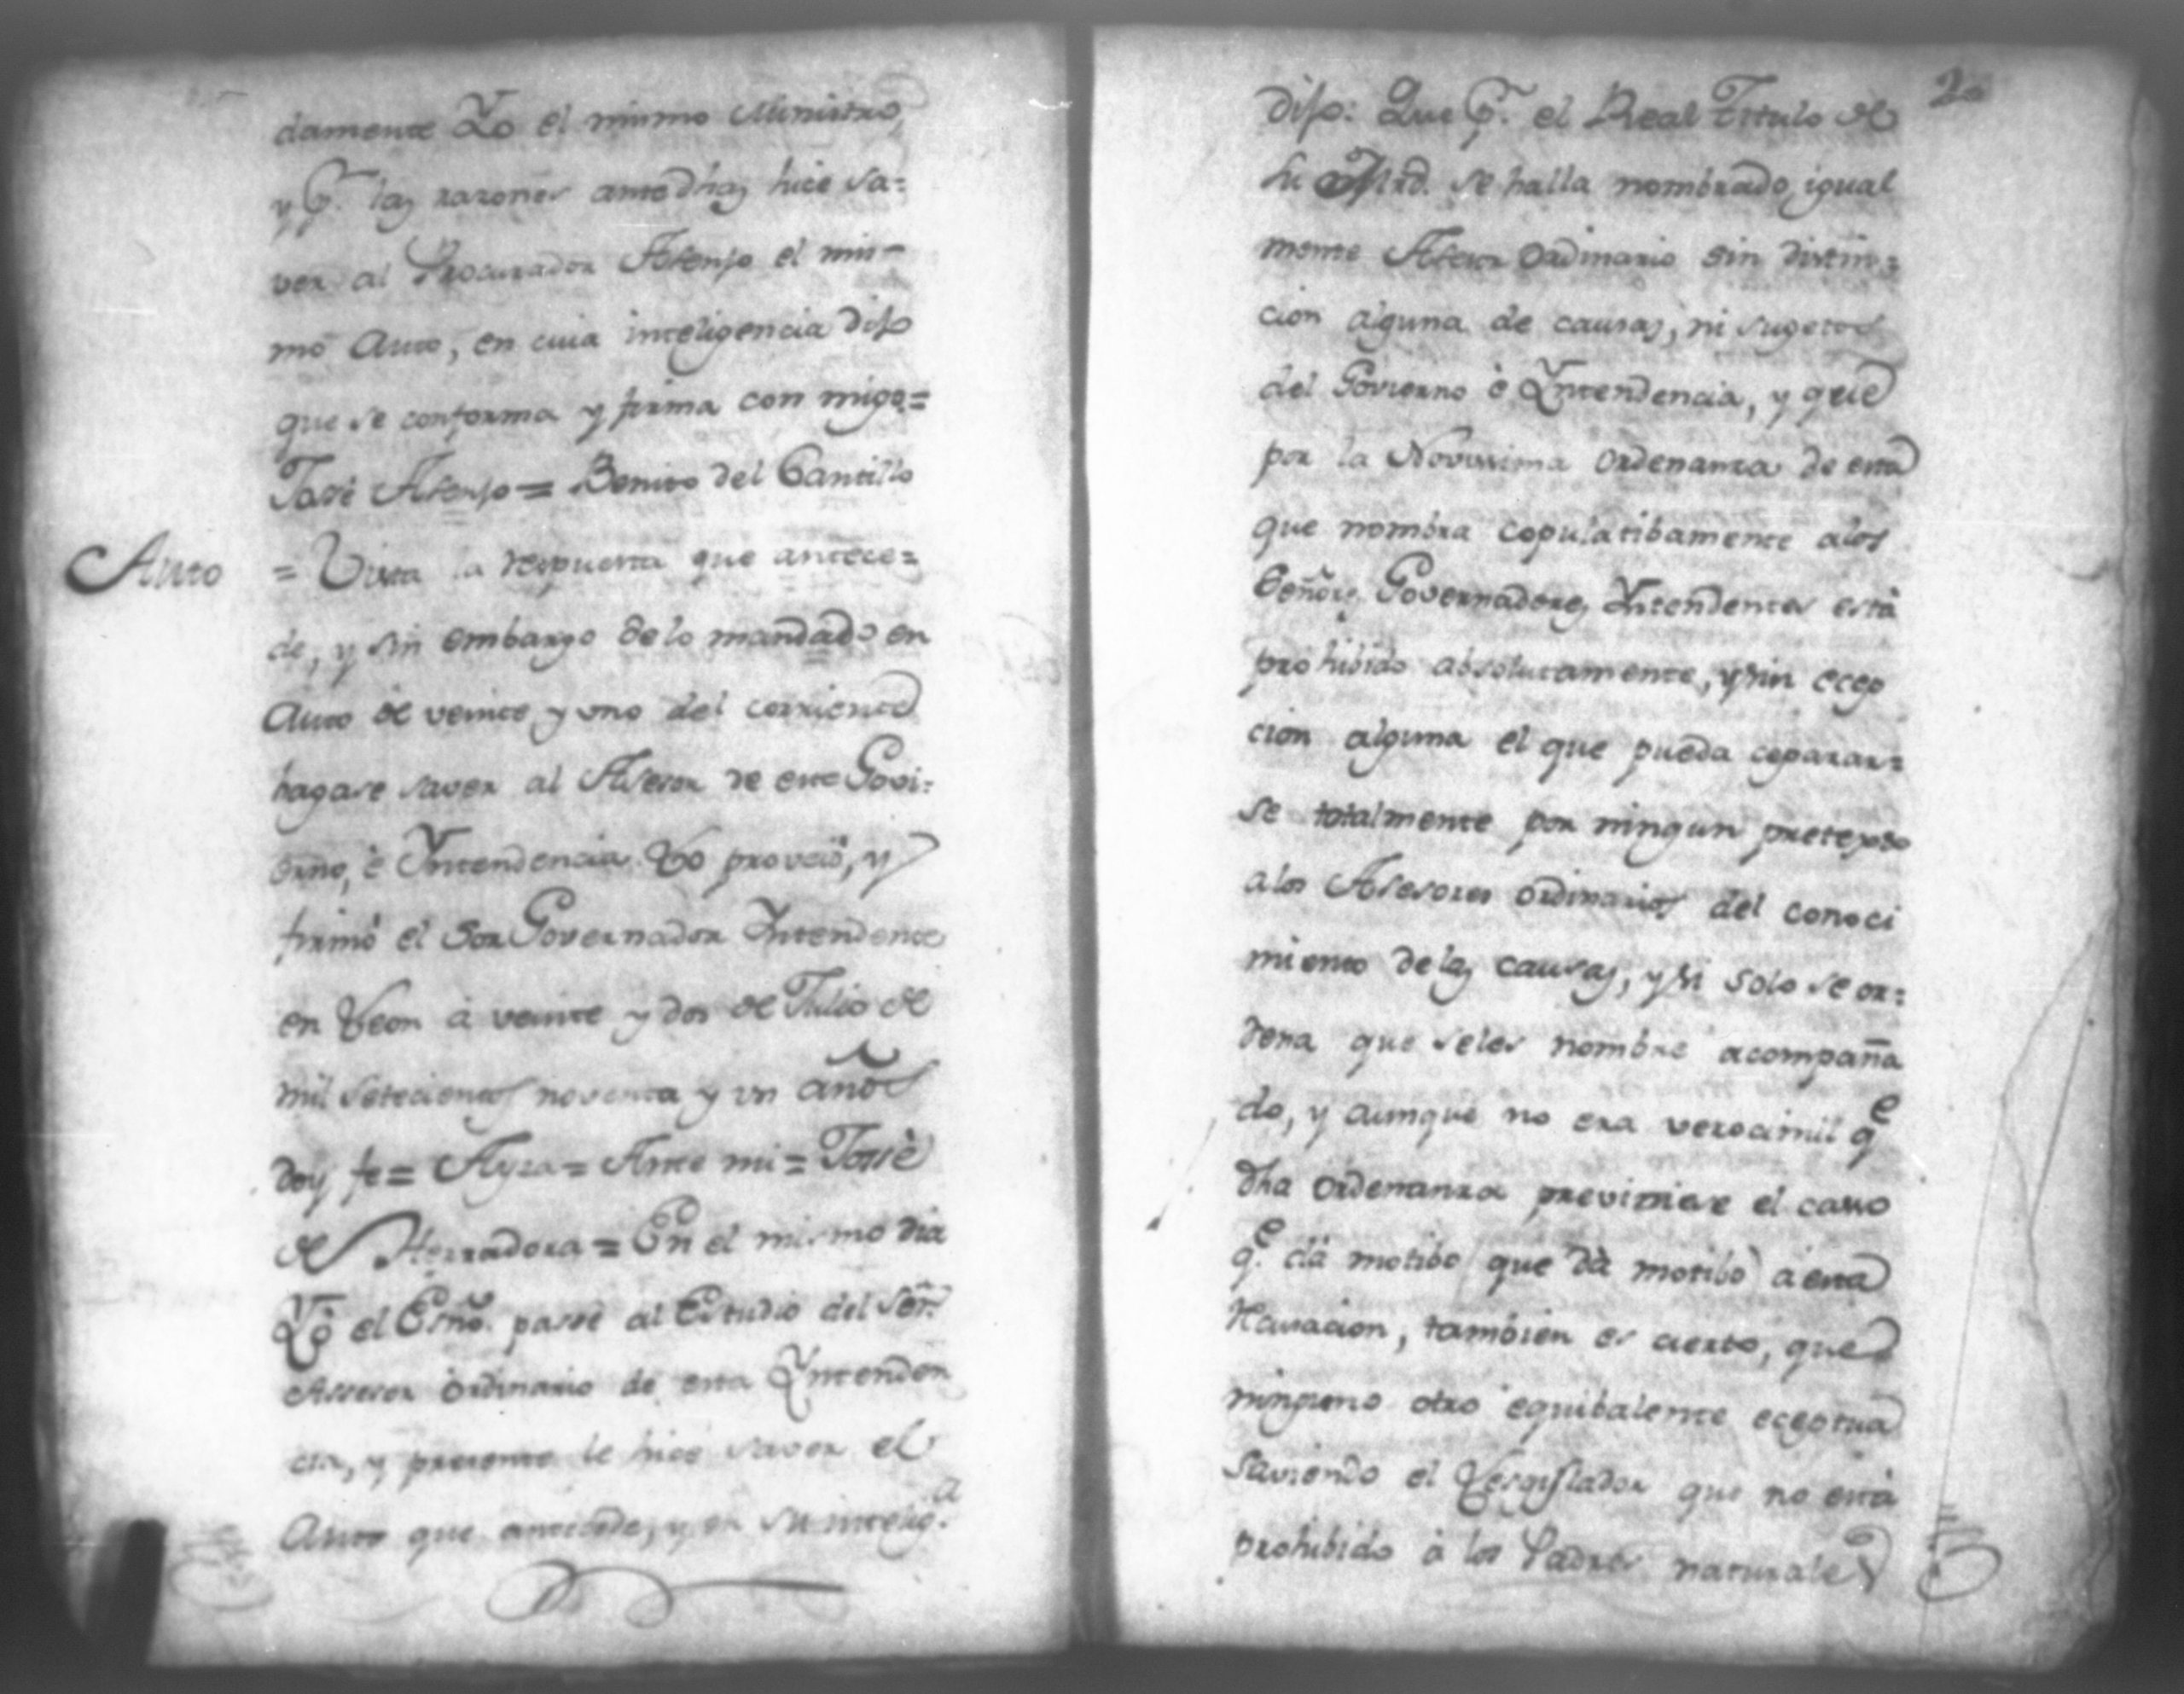 damente Yo el mismo Ministro,
y p.r las razones antedhas hice sa=
ver al Procurador Asenjo el mis-
mo Auto, en cuia inteligencia dijo
que se conforma y firma con migo=
Josè Asenjo = Benito del Cantillo
Auto = Vista la respuesta que antece=
de, y sin embargo de lo mandado en
Auto de veinte y uno del corriente
hagase saver al Asesor de este Govi=
erno, è Yntendencia. Lo proveiò, y
firmò el Sor Governador Yntendente
en Leon à veinte y dos de Julio de
mil setecientos noventa y un años
doy fe = Ayssa = Ante mi = Josè
de Herradora = En el mismo dia
Yo el Esño. passè al Estudio del Señr.
Assesor ordinario de esta Yntenden
cia, y presente le hice saver el
Auto que antecede, y en su intelig.a
20
dijo: Que p.r el Real Titulo de
su Mrd. se halla nombrado igual
mente Asesor Ordinario sin distin=
cion alguna de causas, ni sugetos
del Govierno è Yntendencia, y que
por la Novissima Ordenanza de esta
que nombra copulatibamente alos
Señores Governadores Yntendentes està
prohibido absolutamente, y sin ecep
cion alguna el que pueda ceparar=
se totalmente por ningun pretexto
a los Asesores ordinarios del conoci
miento de las causas, y si solo se or=
dena que seles nombre acompaña
do, y aunque no era verocimil q.e
dha Ordenanza previniese el casso
q.e dà motibo (que dà motibo) à esta
Recusacion, tambien es cierto, que
ninguno otro equibalente eceptua
saviendo el Legislador que no està
prohibido à los Padres naturales